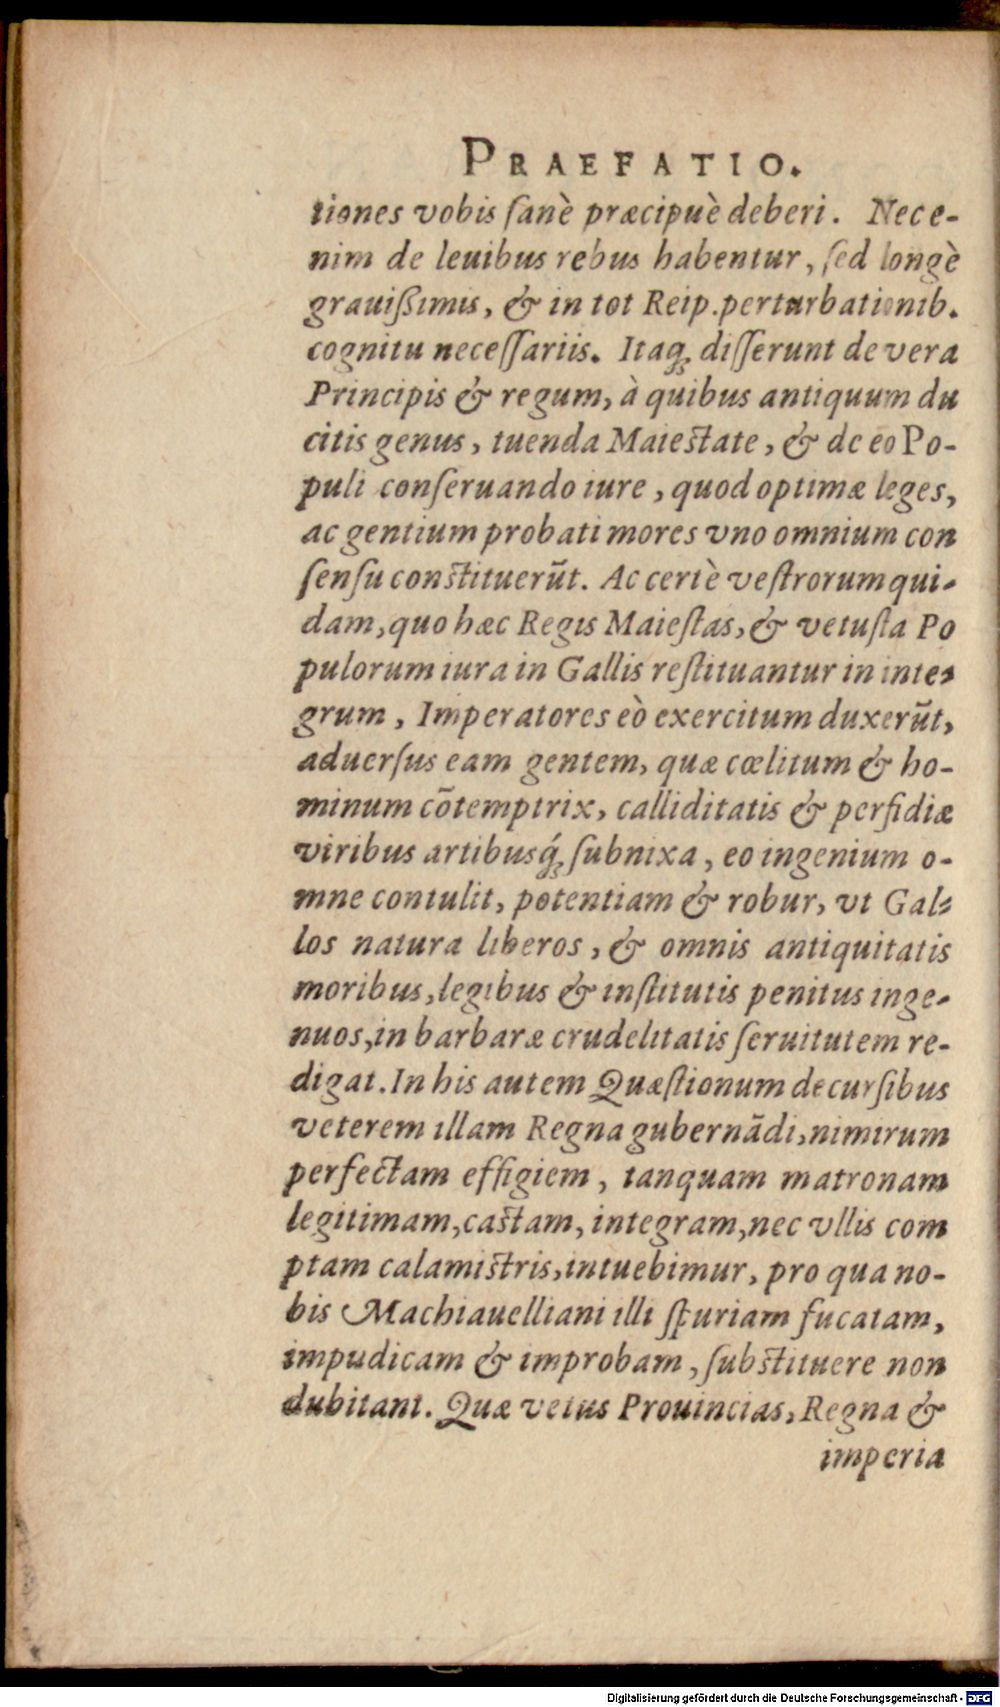 PRAEFATIO.
tiones vobis ſanè præcipuè deberi. Nec e-
nim de leuibus rebus habentur, ſed longè
grauiſsimis, & in tot Reip. perturbationib.
cognitu neceſſariis. Itaq; diſſerunt de vera
Principis & regum, à quibus antiquum du
citis genus, tuenda Maieſtate, & de eo Po-
puli conſeruando iure, quod optimæ leges,
ac gentium probati mores vno omnium con
ſenſu conſtituerūt. Ac certè veſtrorum qui-
dam, quo hæc Regis Maieſtas, & vetuſta Po
pulorum iura in Gallis reſtituantur in inte-
grum, Imperatores eò exercitum duxerūt,
aduerſus eam gentem, quæ cœlitum & ho-
minum cōtemptrix, calliditatis & perfidiæ
viribus artibusq́; ſubnixa, eo ingenium o-
mne contulit, potentiam & robur, vt Gal-
los natura liberos, & omnis antiquitatis
moribus, legibus & inſtitutis penitus inge-
nuos, in barbaræ crudelitatis ſeruitutem re-
digat. In his autem Quæſtionum decurſibus
veterem illam Regna gubernādi, nimirum
perfectam effigiem, tanquam matronam
legitimam, caſtam, integram, nec vllis com
ptam calamiſtris, intuebimur, pro qua no-
bis Machiauelliani illi ſpuriam fucatam,
impudicam & improbam, ſubſtituere non
dubitant. Quæ vetus Prouincias, Regna &
imperia
Digitalisierung gefördert durch die Deutsche Forschungsgemeinschaft - DFG